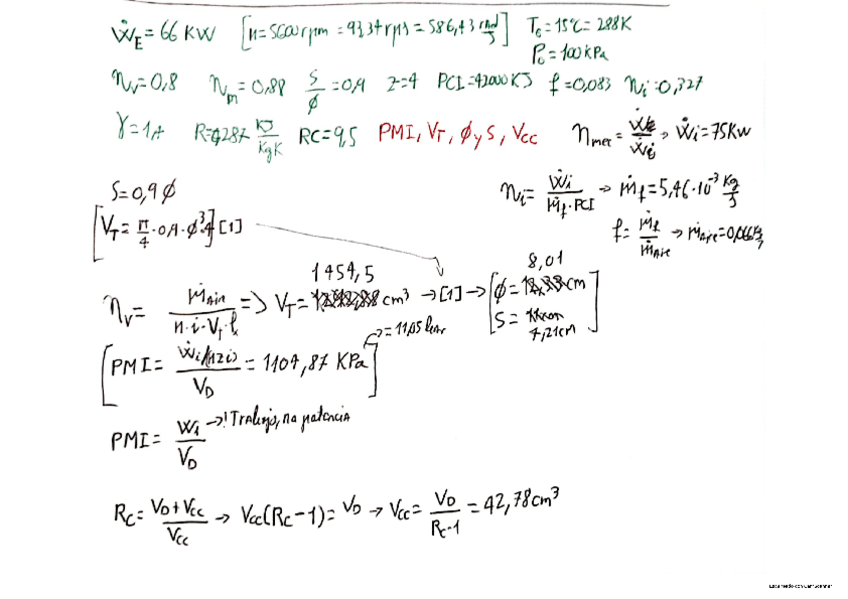 Ẇ_E = 66 KW [n = 5600 rpm = 93,34 rps = 586,43 rad/s] T_0 = 15ºC = 288K
P_0 = 100 kPa
η_v = 0,8 η_m = 0,88 S/φ = 0,9 z = 4 PCI = 42000 KJ f = 0,083 η_i = 0,327
γ = 1,4 R = 0,287 KJ/KgK RC = 9,5 PMI, V_T, φ y S, V_CC η_mec = Ẇ_E/Ẇ_i → Ẇ_i = 75 Kw
S = 0,9 φ
η_i = Ẇ_i/(ṁ_f · PCI) → ṁ_f = 5,46·10^-3 Kg/s
[V_T = π/4 · 0,9 · φ^3 · 4] [1]
f = ṁ_f/ṁ_Aire → ṁ_Aire = 0,066
η_v = ṁ_Aire/(n·i·V_T·ρ) => V_T = 1454,5 cm³ → [1] → [φ = 8,01 cm
S = 7,21 cm]
[PMI = Ẇ_i/(n z i)/V_D = 1104,87 KPa] → = 11,05 bar
PMI = W_i/V_D → ! Trabajo, no potencia
R_C = (V_D + V_CC)/V_CC → V_CC(R_C - 1) = V_D → V_CC = V_D/(R_C - 1) = 42,78 cm³